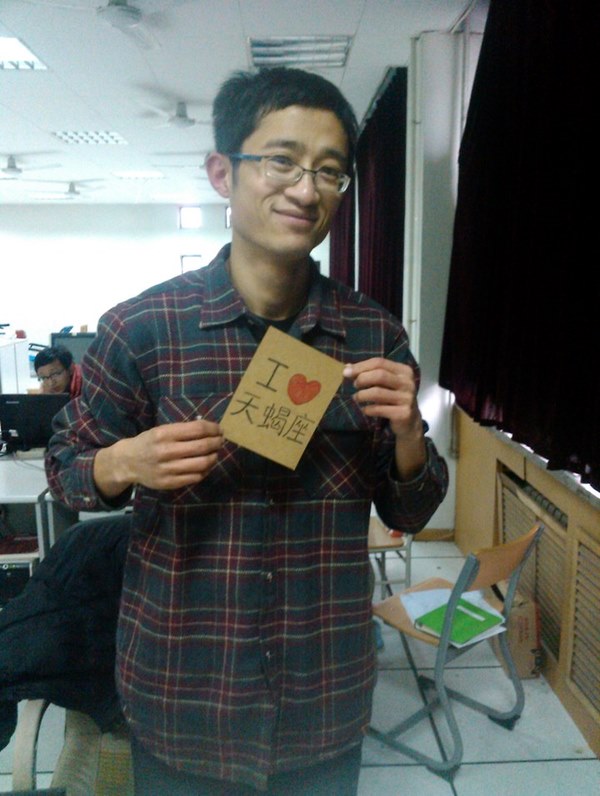 I ❤
天蝎座